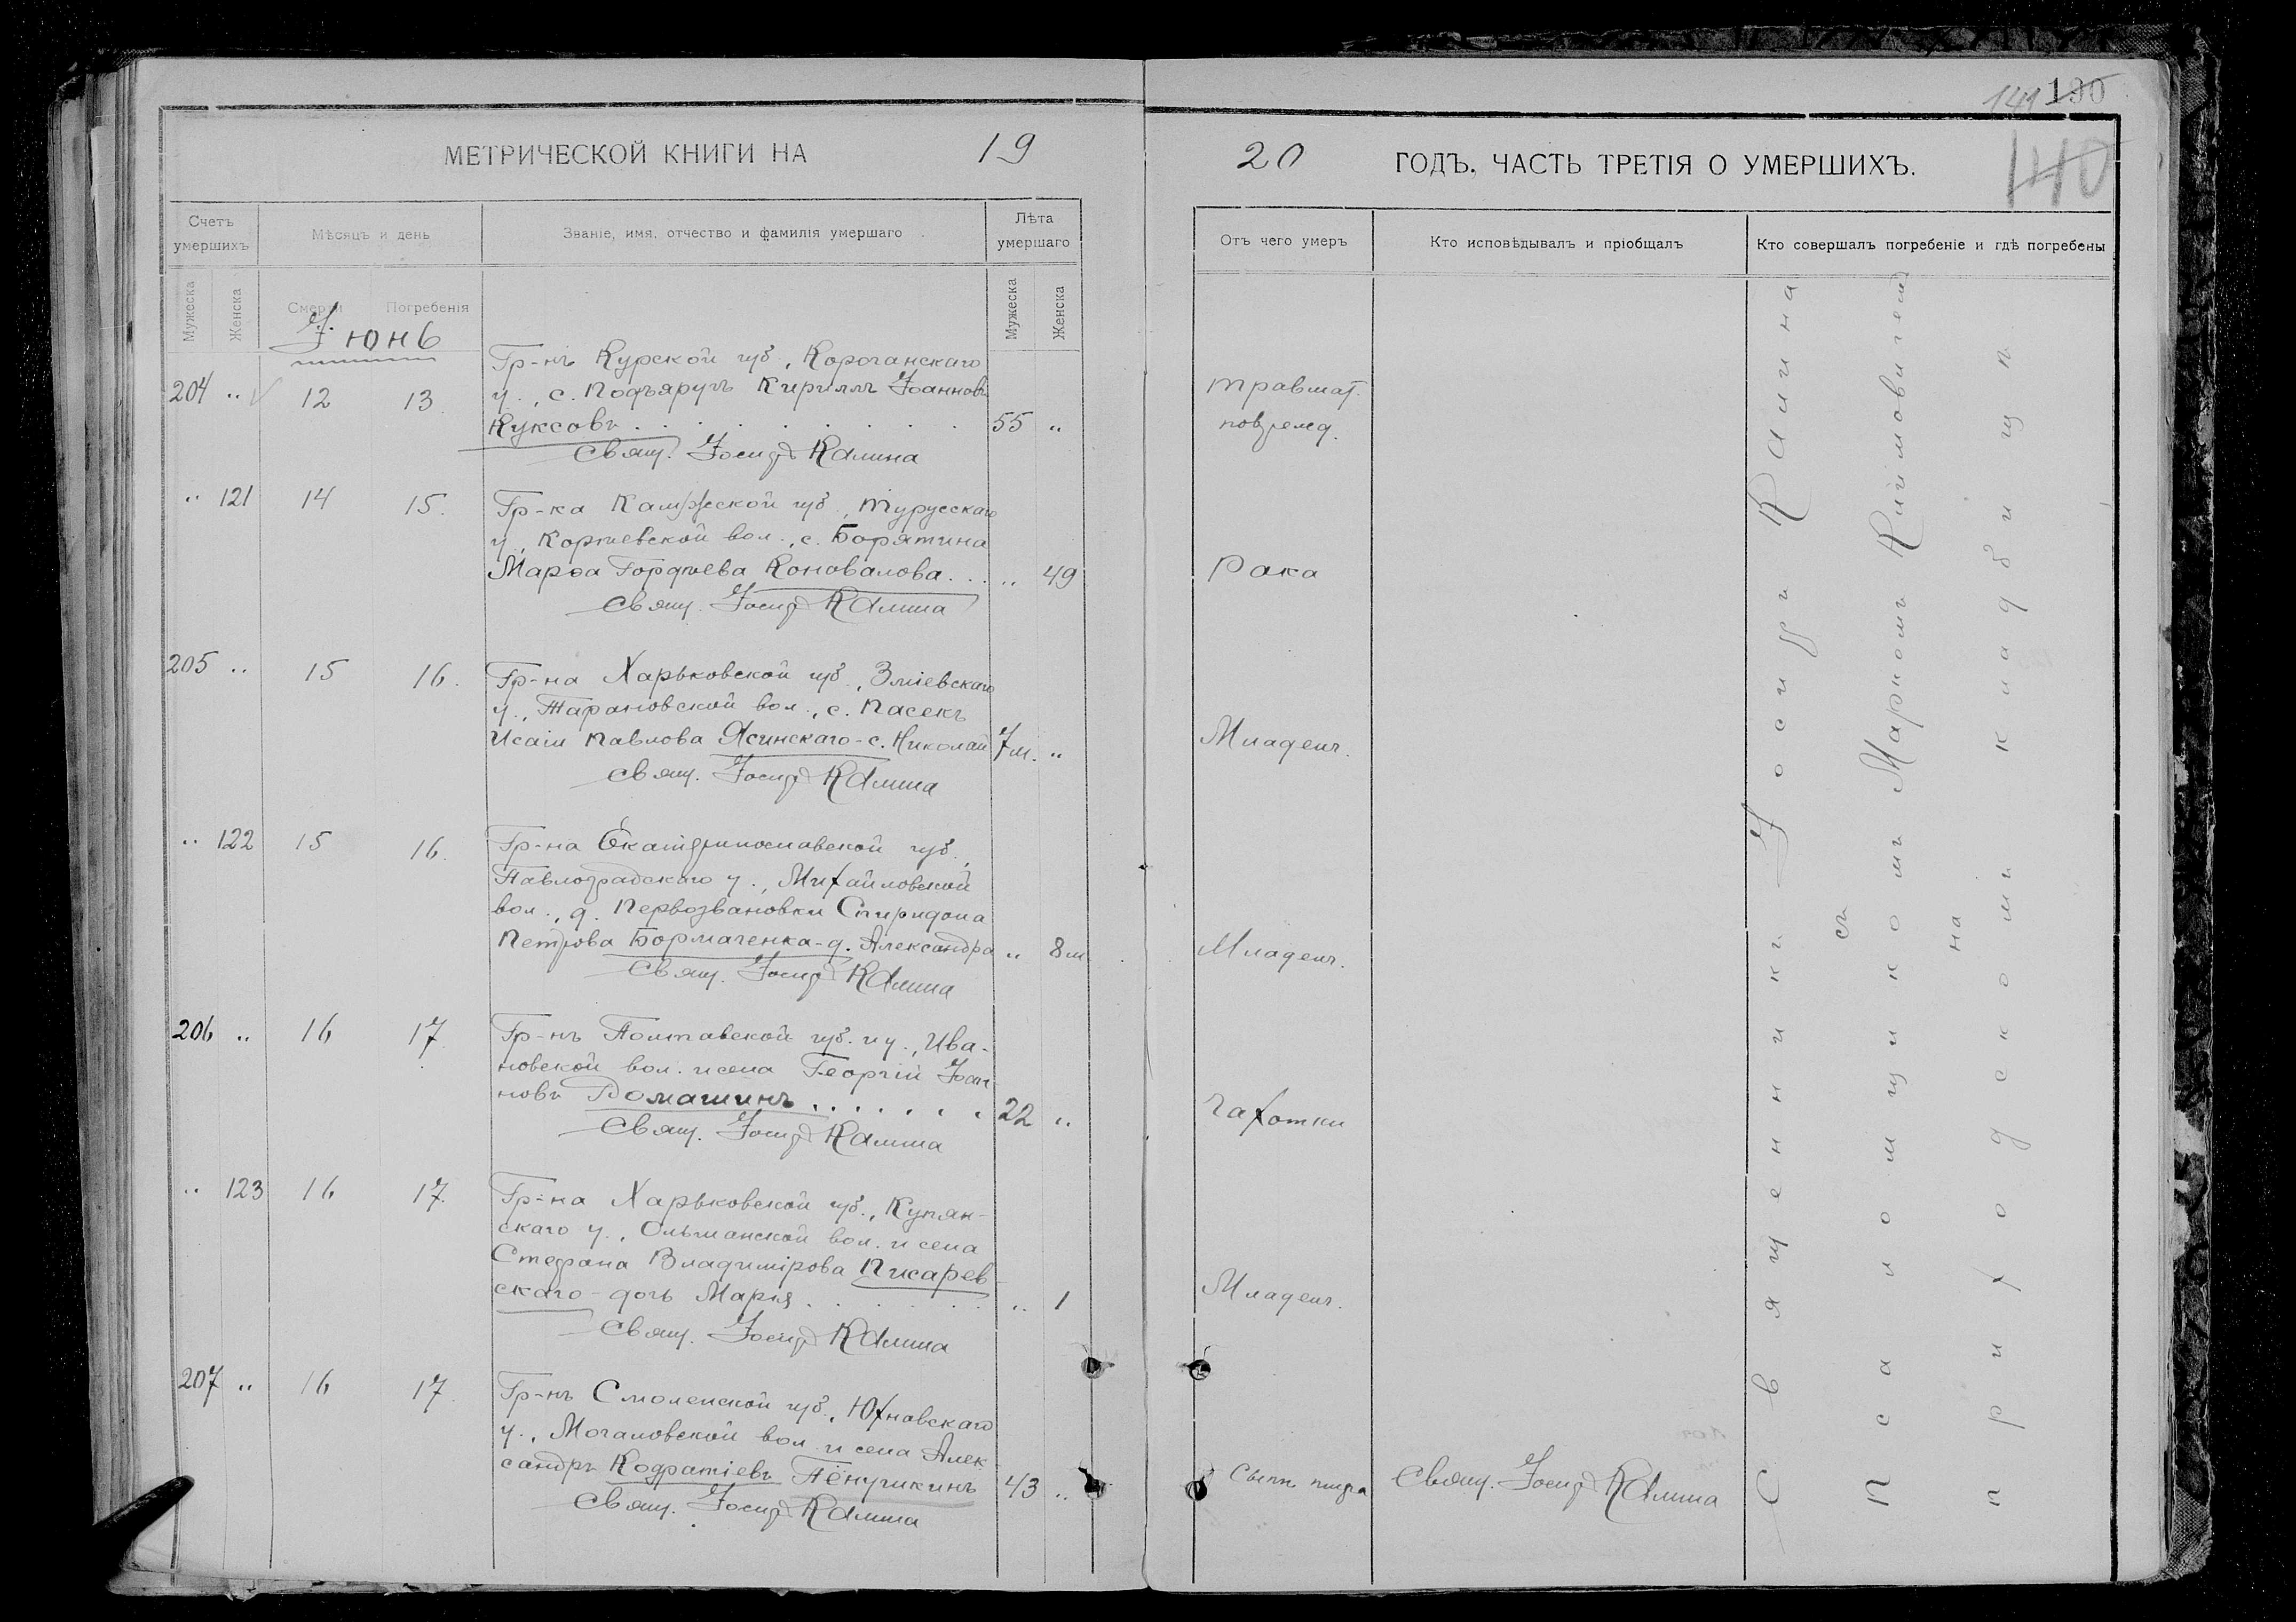 141 130
140
МЕТРИЧЕСКОЙ КНИГИ НА 19
20 ГОДЪ, ЧАСТЬ ТРЕТІЯ О УМЕРШИХЪ.
Счетъ умершихъ
Мѣсяцъ и день
Званіе, имя, отчество и фамилія умершаго
Лѣта умершаго
Отъ чего умеръ
Кто исповѣдывалъ и пріобщалъ
Кто совершалъ погребеніе и гдѣ погребены
Мужеска Женска Смерти Погребенія Мужеска Женска
Іюнь
Гр-нъ Курской губ., Корочанскаго
204 " 12 13 у., с. Подъяругъ Кириллъ Іоанновъ травмат.
Куксовъ . . . . . . . . . 55 " поврежд.
Свящ. Іосифъ Калина
" 121 14 15. Гр-ка Калужской губ., Турусскаго
у., Кортевской вол., с. Борятина
Марѳа Гордѣева Коновалова . . " 49 Рака
Свящ. Іосифъ Калина
205 " 15 16. Гр-на Харьковской губ., Зміевскаго
у., Тарановской вол., с. Пасекъ
Исаіи Павлова Ясинскаго - с. Николай 7 м. " Младенч.
Свящ. Іосифъ Калина
" 122 15 16. Гр-на Екатеринославской губ.,
Павлоградскаго у., Михайловской
вол., д. Первозвановки Спиридона
Петрова Бормаченка - д. Александра " 8 м Младенч.
Свящ. Іосифъ Калина
206 " 16 17 Гр-нъ Полтавской губ. и у., Ива-
новской вол. и села Георгій Іоан-
новъ Домашинъ . . . . . . . 22 " Чахотки
Свящ. Іосифъ Калина
" 123 16 17. Гр-на Харьковской губ., Купян-
скаго у., Ольшанской вол. и села
Стефана Владимірова Писарев-
скаго - дочь Марія . . . . . . " 1 Младенч.
Свящ. Іосифъ Калина
207 " 16 17. Гр-нъ Смоленской губ., Юхновскаго
у., Мочаловской вол. и села Алек-
сандръ Кодратіевъ Пёнушкинъ 43 " Сыпн. тифа Свящ. Іосифъ Калина
Свящ. Іосифъ Калина
Священникъ Іосифъ Калина
съ
Псаломщикомъ Маркомъ Климовичемъ
на
приходскомъ кладбищѣ